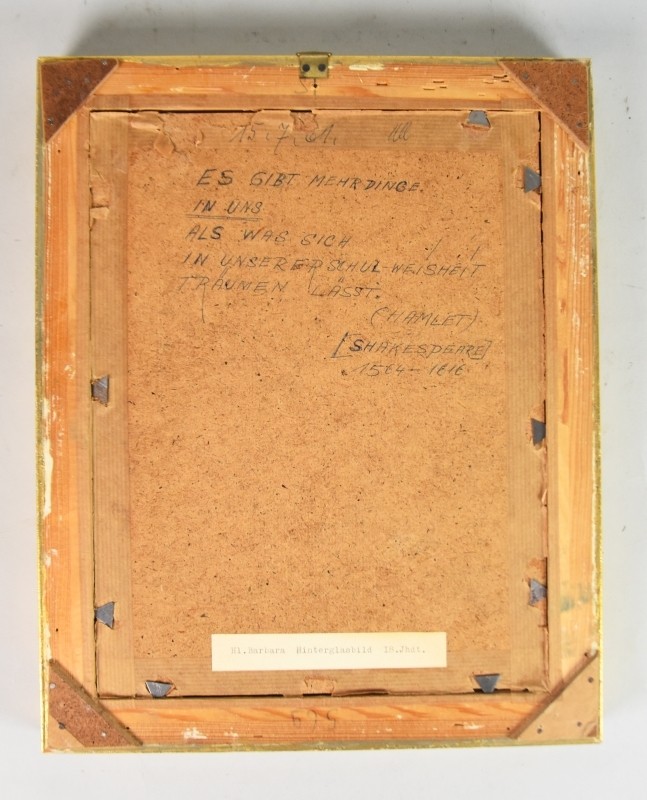 15.7.61.
ES GIBT MEHR DINGE.
IN UNS
ALS WAS SICH
IN UNSERER SCHUL-WEISHEIT
TRÄUMEN LÄSST.
(HAMLET).
[SHAKESPEARE]
1564-1616.
Hl.Barbara Hinterglasbild 18.Jhdt.